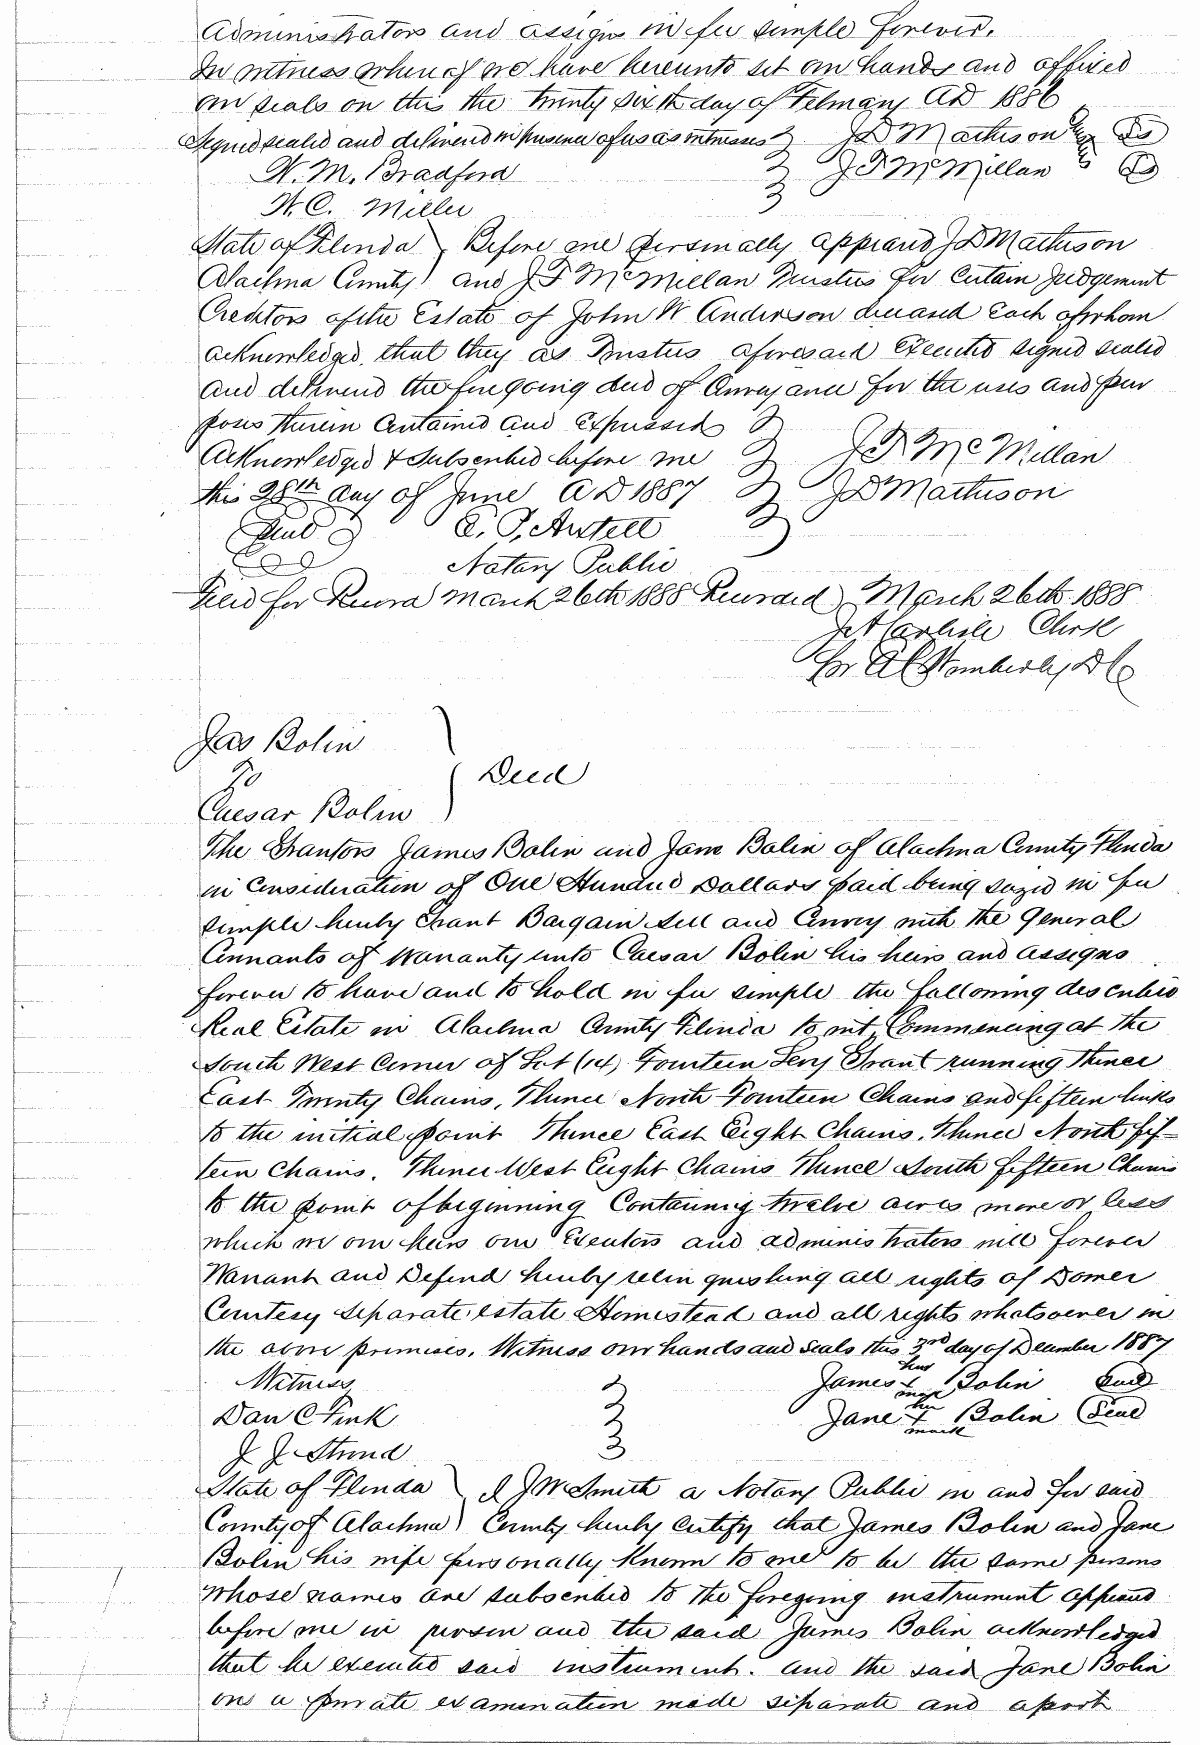 Administrators and assigns in fee simple forever.
In witness whereof we have hereunto set our hands and affixed
our seals on this the twenty sixth day of February AD 1886
Signed sealed and delivered in presence of us as witnesses J D Matheson Trustees Ls
W. M. Bradford J F McMillan Ls
H. C. Miller
State of Florida Before me personally appeared J D Matheson
Alachua County and J F McMillan Trustees for Certain Judgement
Creditors of the Estate of John W Anderson deceased Each of whom
acknowledged that they as Trustees aforesaid Executed signed sealed
and delivered the foregoing deed of Conveyance for the uses and pur
poses therein Contained and Expressed
Acknowledged & Subscribed before me J F McMillan
this 28th day of June AD 1887 J D Matheson
Seal C. P. Austell
Notary Public
Filed for Record March 26th 1888 Recorded March 26th 1888
Clerk
Per D C
Jas Bolin
To Deed
Caesar Bolin
The Grantors James Bolin and Jane Bolin of Alachua County Florida
in Consideration of One Hundred Dollars paid being siezed in fee
simple hereby Grant Bargain sell and Convey with the General
Covenants of Warranty unto Caesar Bolin his heirs and assigns
forever to have and to hold in fee simple the following described
Real Estate in Alachua County Florida to wit, Commencing at the
South West Corner of Lot (14) Fourteen Levy Grant running thence
East Twenty Chains, Thence North Fourteen Chains and fifteen links
to the initial point Thence East Eight Chains, Thence North fif-
teen Chains. Thence West Eight Chains Thence South fifteen Chains
to the point of beginning Containing twelve acres more or less
which we our heirs our Executors and administrators will forever
Warrant and Defend hereby relinquishing all rights of Dower
Courtesy separate estate Homestead and all rights whatsoever in
the above premises. Witness our hands and seals this 3rd day of December 1887
Witness James his + mark Bolin Seal
Dan C Fink Jane her + mark Bolin Seal
J J Stroud
State of Florida I J W Smith a Notary Public in and for said
County of Alachua County hereby certify that James Bolin and Jane
Bolin his wife personally known to me to be the same persons
whose names are subscribed to the foregoing instrument appeared
before me in person and the said James Bolin acknowledged
that he executed said instrument. and the said Jane Bolin
on a private examination made separate and apart